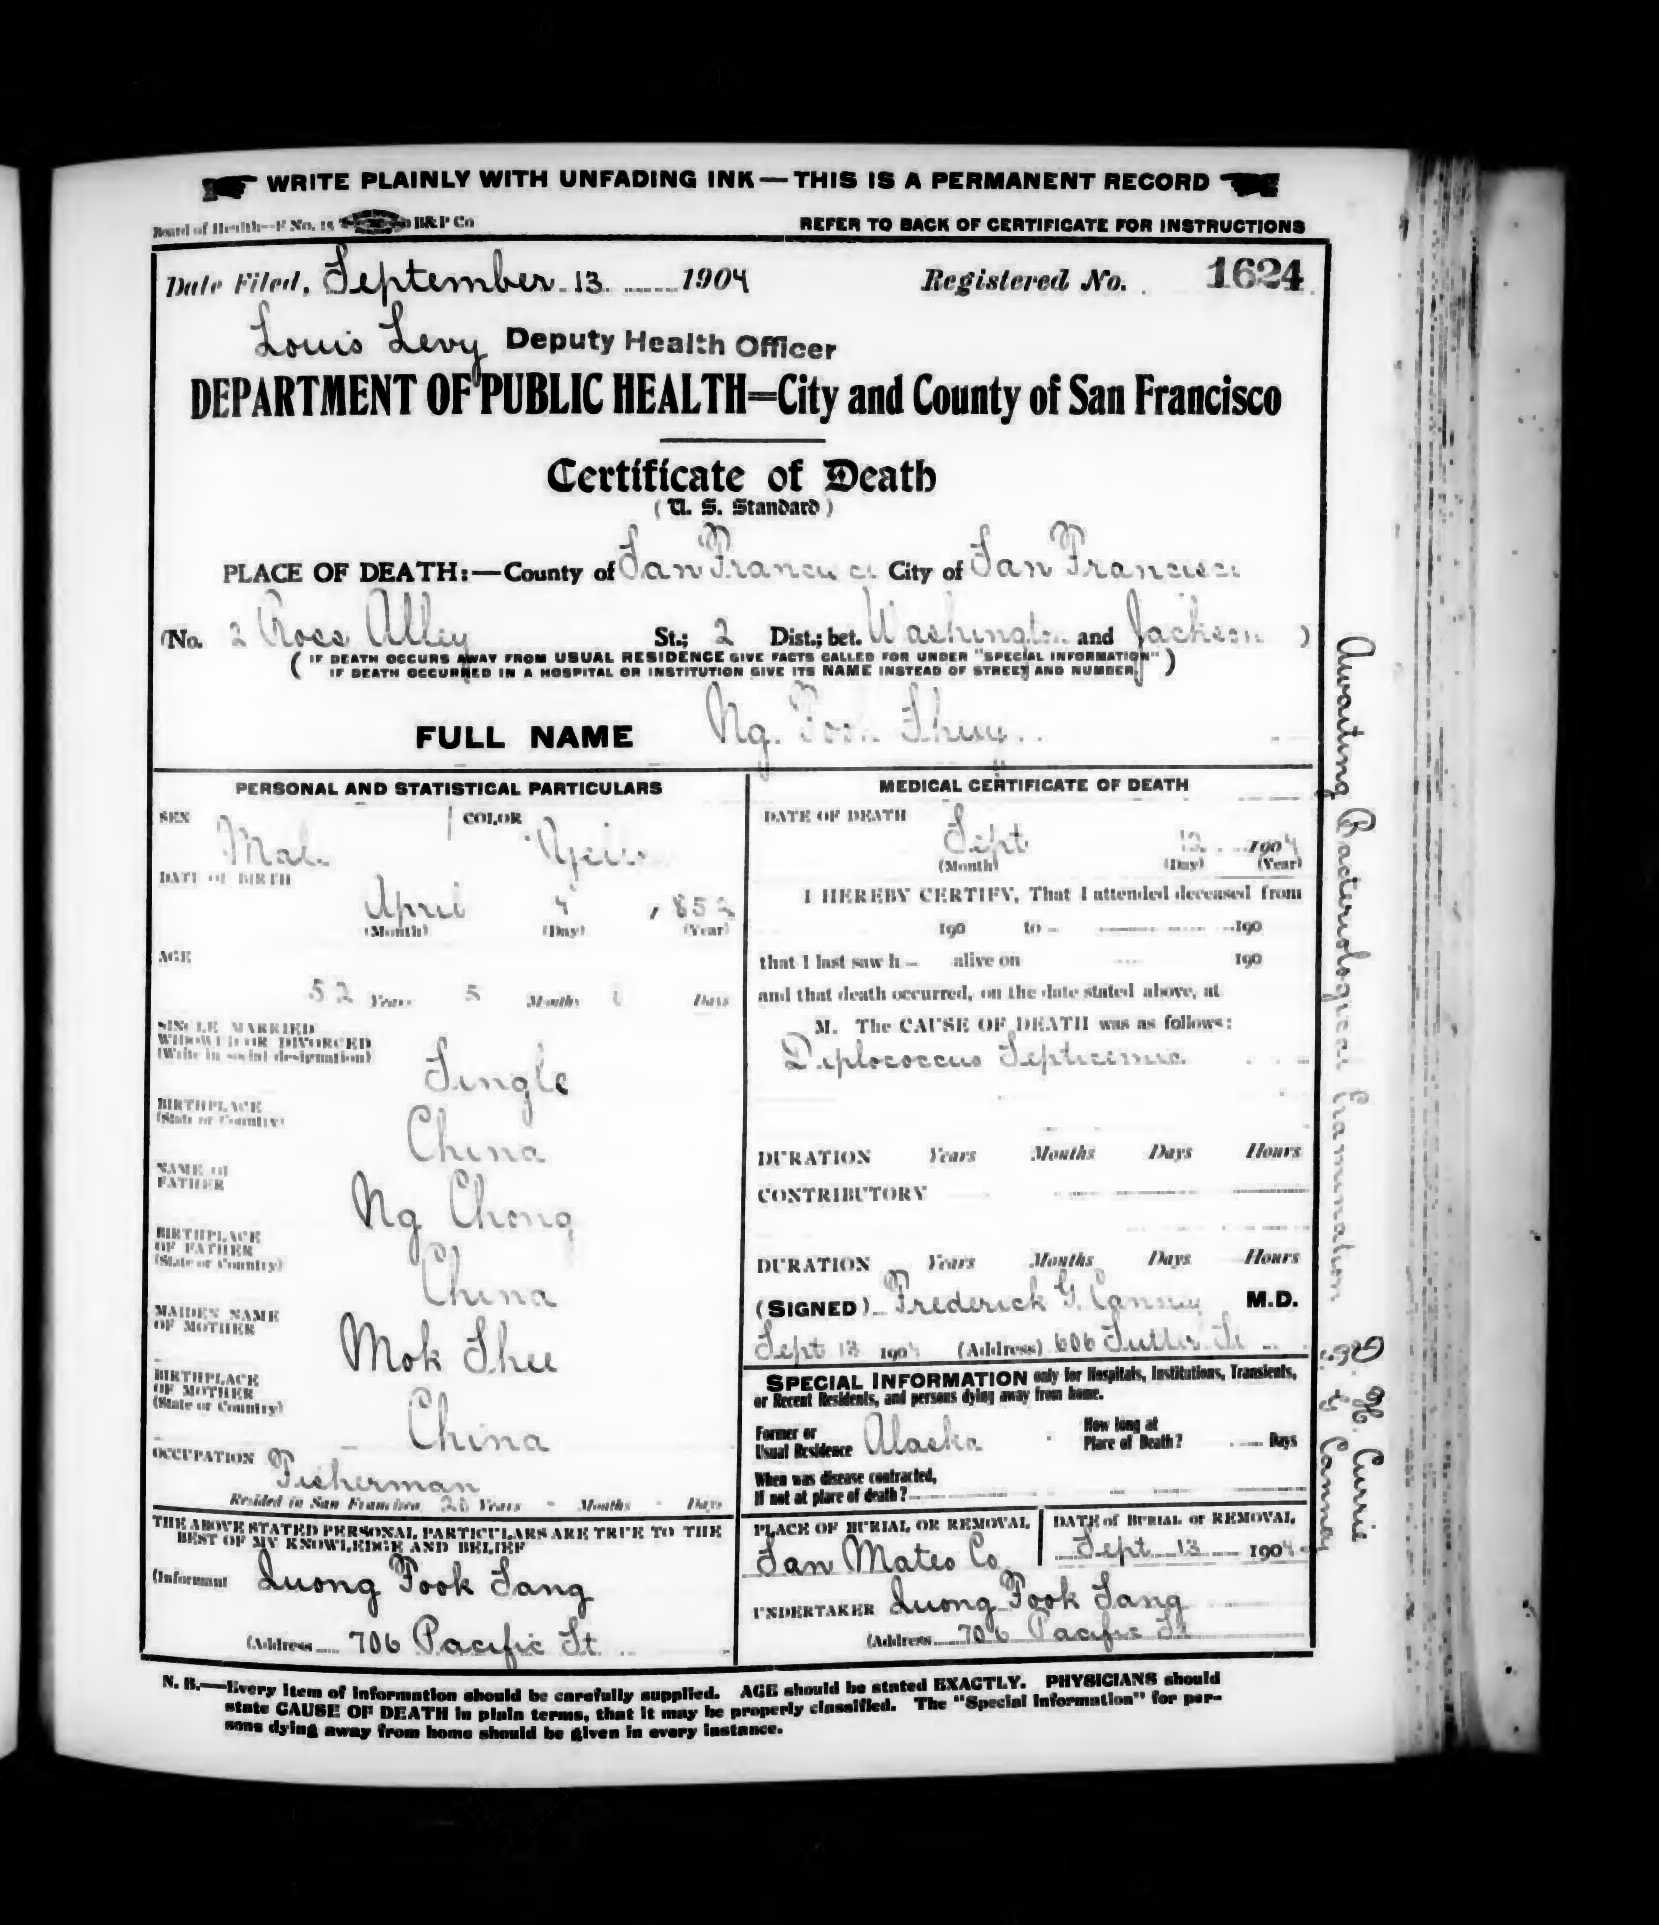 WRITE PLAINLY WITH UNFADING INK—THIS IS A PERMANENT RECORD
Board of Health—F No. 15 B&P Co
REFER TO BACK OF CERTIFICATE FOR INSTRUCTIONS
Date Filed, September 13 1904 Registered No. 1624
Louis Levy Deputy Health Officer
DEPARTMENT OF PUBLIC HEALTH=City and County of San Francisco
Certificate of Death
(U. S. Standard)
PLACE OF DEATH:—County of San Francisco City of San Francisco
(No. 2 Ross Alley St.; 2 Dist.; bet. Washington and Jackson )
( IF DEATH OCCURS AWAY FROM USUAL RESIDENCE GIVE FACTS CALLED FOR UNDER "SPECIAL INFORMATION"
IF DEATH OCCURRED IN A HOSPITAL OR INSTITUTION GIVE ITS NAME INSTEAD OF STREET AND NUMBER )
FULL NAME Ng Fook Shuy
PERSONAL AND STATISTICAL PARTICULARS
SEX Male COLOR
DATE OF BIRTH
April 4 1852
(Month) (Day) (Year)
AGE
52 Years 5 Months Days
SINGLE MARRIED
WIDOWED OR DIVORCED
(Write in social designation)
Single
BIRTHPLACE
(State or Country)
China
NAME OF
FATHER
Ng Chong
BIRTHPLACE
OF FATHER
(State or Country)
China
MAIDEN NAME
OF MOTHER
Mok Shee
BIRTHPLACE
OF MOTHER
(State or Country)
China
OCCUPATION Fisherman
Resided in San Francisco 20 Years - Months - Days
THE ABOVE STATED PERSONAL PARTICULARS ARE TRUE TO THE
BEST OF MY KNOWLEDGE AND BELIEF
(Informant Quong Fook Sang
(Address 706 Pacific St
MEDICAL CERTIFICATE OF DEATH
DATE OF DEATH
Sept 12 1904
(Month) (Day) (Year)
I HEREBY CERTIFY, That I attended deceased from
190 to 190
that I last saw h— alive on 190
and that death occurred, on the date stated above, at
M. The CAUSE OF DEATH was as follows:
Diplococcus Septicemia
DURATION Years Months Days Hours
CONTRIBUTORY
DURATION Years Months Days Hours
(SIGNED) Frederick G. Canney M.D.
Sept 13 1904 (Address) 606 Sutter St
SPECIAL INFORMATION only for Hospitals, Institutions, Transients,
or Recent Residents, and persons dying away from home.
Former or
Usual Residence Alaska
How long at
Place of Death? Days
When was disease contracted,
If not at place of death?
PLACE OF BURIAL OR REMOVAL
San Mateo Co
DATE of BURIAL or REMOVAL
Sept 13 1904
UNDERTAKER Quong Fook Sang
(Address 706 Pacific St
N. B.—Every item of information should be carefully supplied. AGE should be stated EXACTLY. PHYSICIANS should
state CAUSE OF DEATH in plain terms, that it may be properly classified. The "Special Information" for per-
sons dying away from home should be given in every instance.
Awaiting Bacteriological Examination
D. H. Currie
F. G. Canney